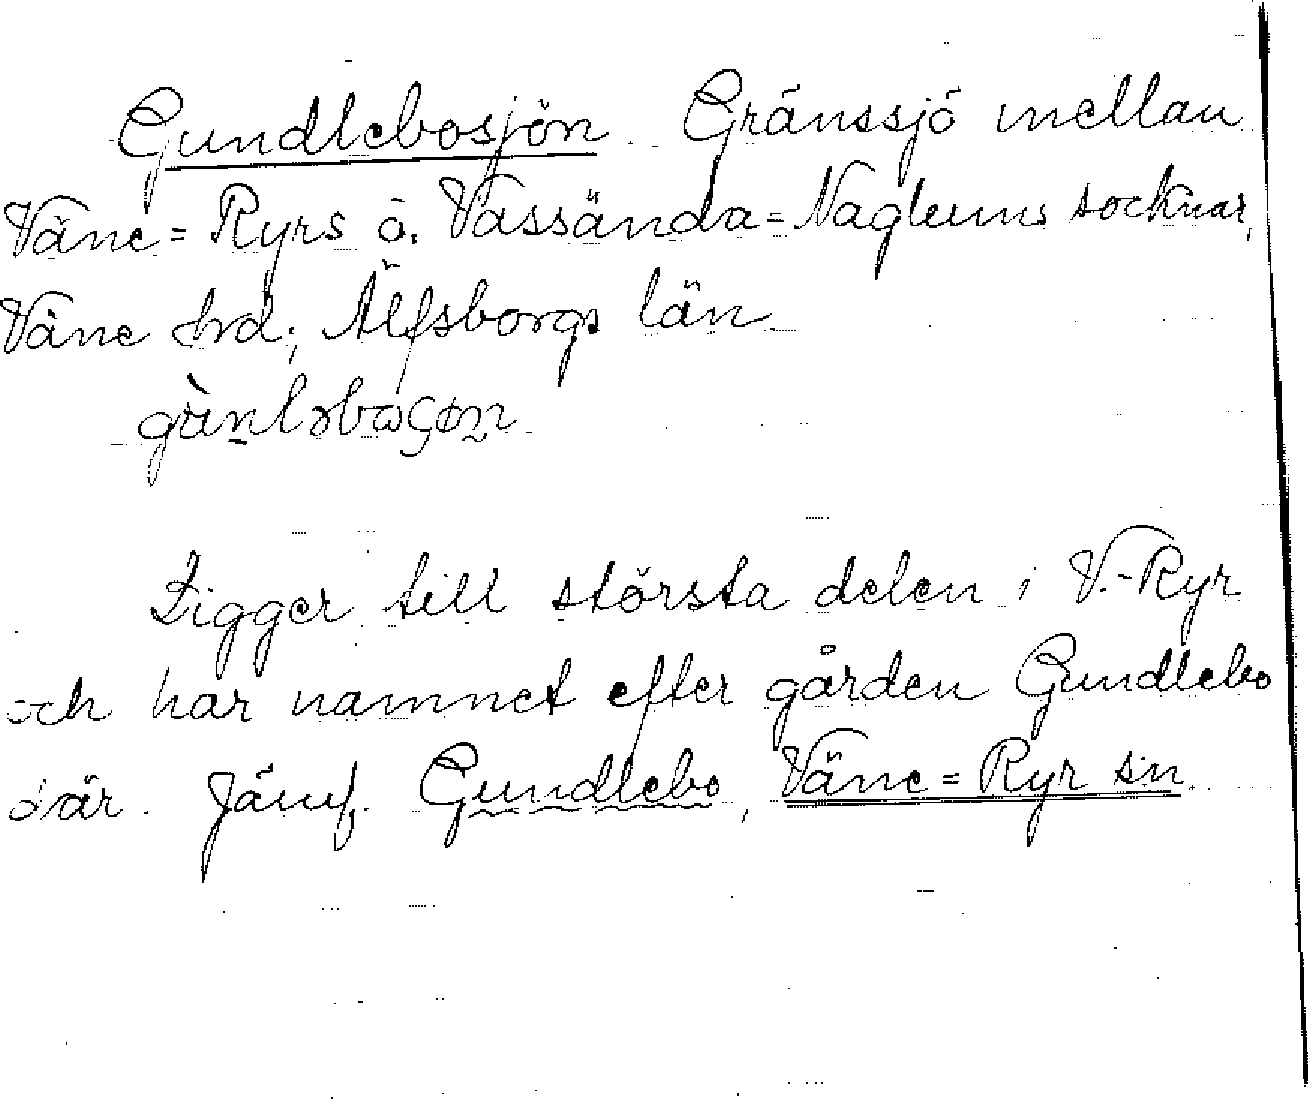 Gundlebosjön Gränssjö mellan
Väne=Ryrs o. Vassända=Naglums socknar,
Väne hrd; Älfsborgs län
Ligger till största delen i V.-Ryr
och har namnet efter gården Gundlebo
där. Jämf. Gundlebo, Väne=Ryr sn